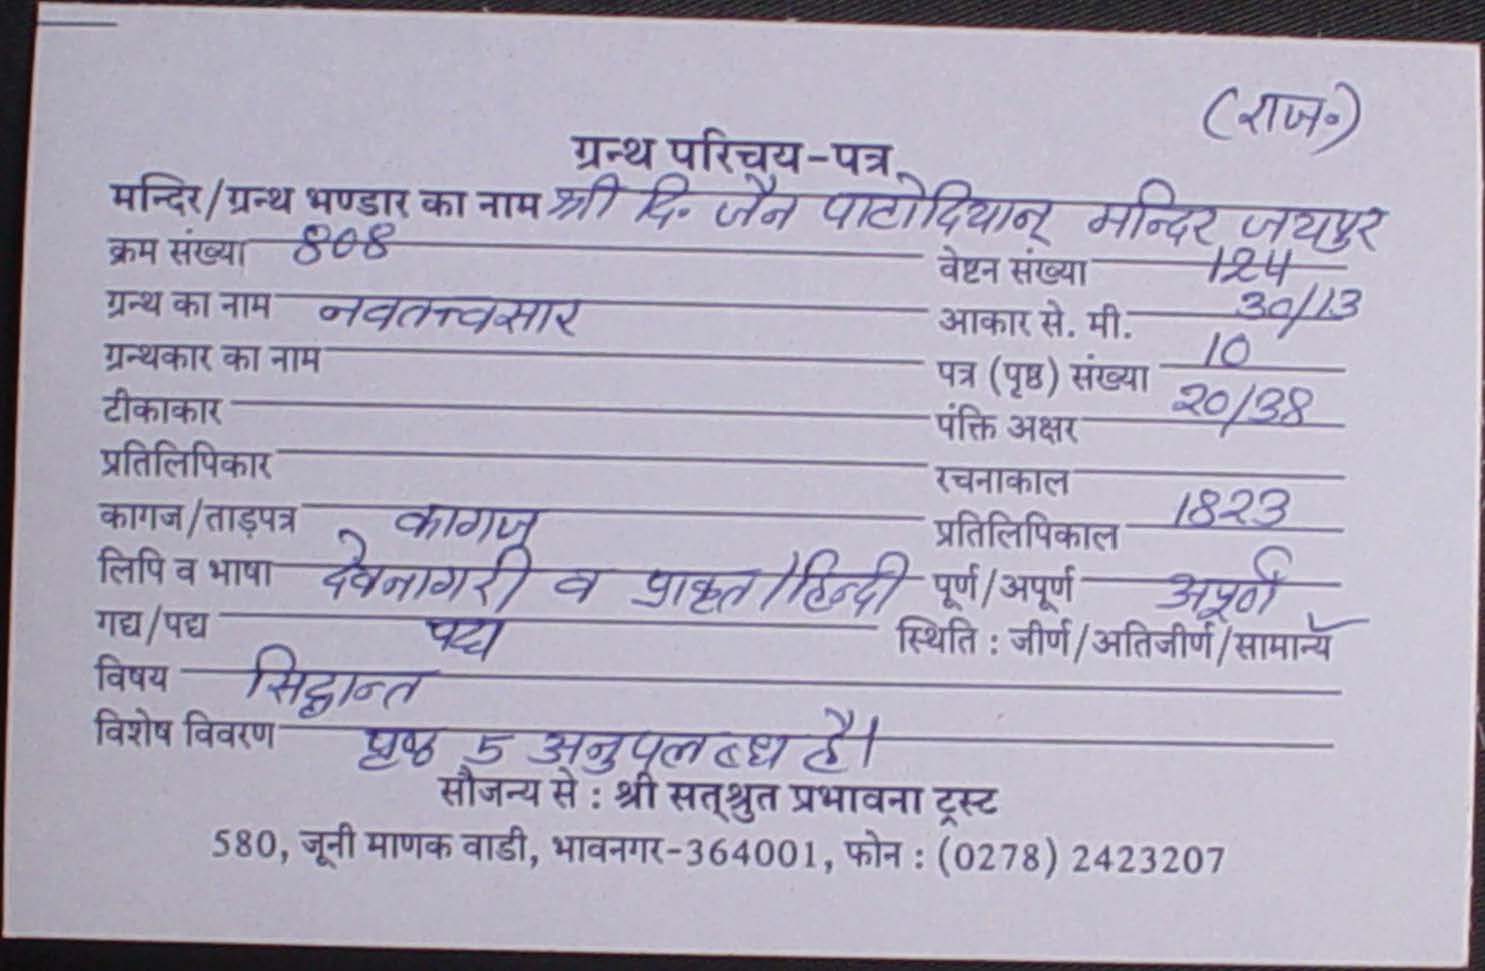 (राज॰)
ग्रन्थ परिचय-पत्र
मन्दिर/ग्रन्थ भण्डार का नाम श्री दि. जैन पाटोदियान् मन्दिर जयपुर
क्रम संख्या 808 वेष्टन संख्या 124
ग्रन्थ का नाम नवतत्त्वसार आकार से. मी. 30/13
ग्रन्थकार का नाम पत्र (पृष्ठ) संख्या 10
टीकाकार पंक्ति अक्षर 20/38
प्रतिलिपिकार रचनाकाल
कागज/ताड़पत्र कागज प्रतिलिपिकाल 1823
लिपि व भाषा देवनागरी व प्राकृत/हिन्दी पूर्ण/अपूर्ण अपूर्ण
गद्य/पद्य पद्य स्थिति : जीर्ण/अतिजीर्ण/सामान्य
विषय सिद्धान्त
विशेष विवरण पृष्ठ 5 अनुपलब्ध है।
सौजन्य से : श्री सत्श्रुत प्रभावना ट्रस्ट
580, जूनी माणक वाडी, भावनगर-364001, फोन : (0278) 2423207